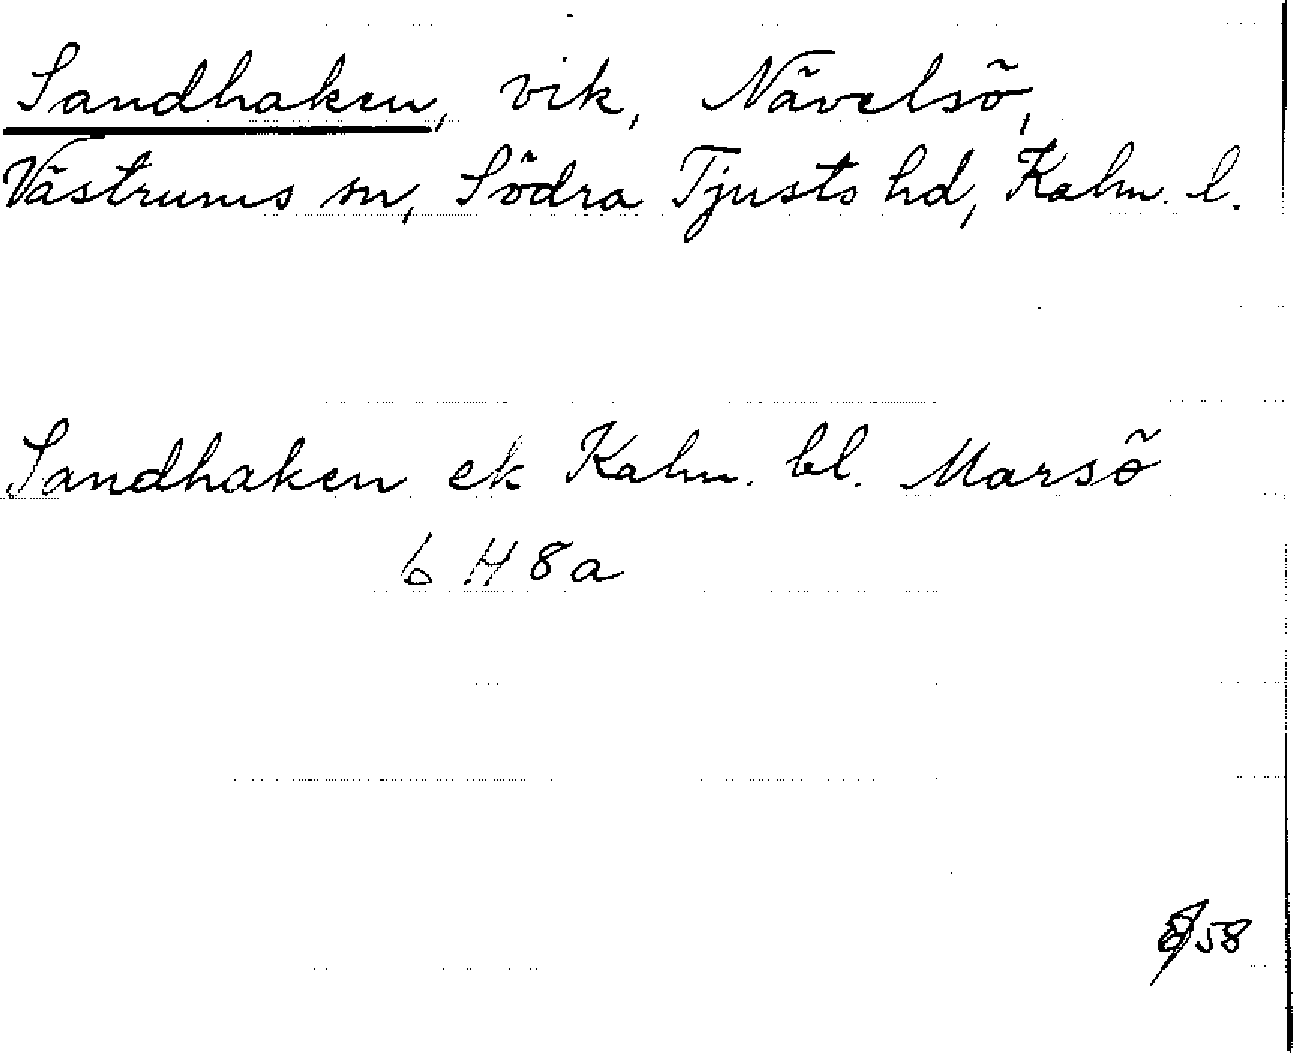 Sandhaken, vik, Nävelsö,
Västrums sn, Södra Tjusts hd, Kalm. l.
Sandhaken ek Kalm. bl. Marsö
6 H 8 a
58